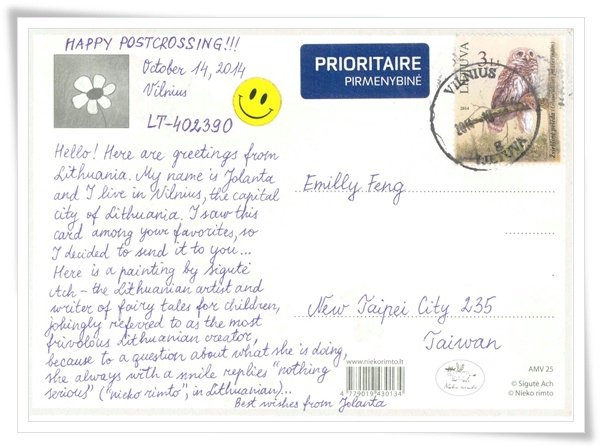 HAPPY POSTCROSSING!!!
October 14, 2014
Vilnius
LT-402390
Hello! Here are greetings from
Lithuania. My name is Jolanta
and I live in Vilnius, the capital
city of Lithuania. I saw this
card among your favorites, so
I decided to send it to you...
Here is a painting by Sigutė
Ach - the Lithuanian artist and
writer of fairy tales for children,
jokingly referred to as the most
frivolous Lithuanian creator,
because to a question about what she is doing,
she always with a smile replies "nothing
serious" ("nieko rimto", in Lithuanian)...
Best wishes from Jolanta
PRIORITAIRE
PIRMENYBINĖ
LIETUVA
3 Lt
2014
VILNIUS
LIETUVA
Emilly Feng
New Taipei City 235
Taiwan
www.niekorimto.lt
4779019430134
Nieko rimto
AMV 25
© Sigutė Ach
© Nieko rimto